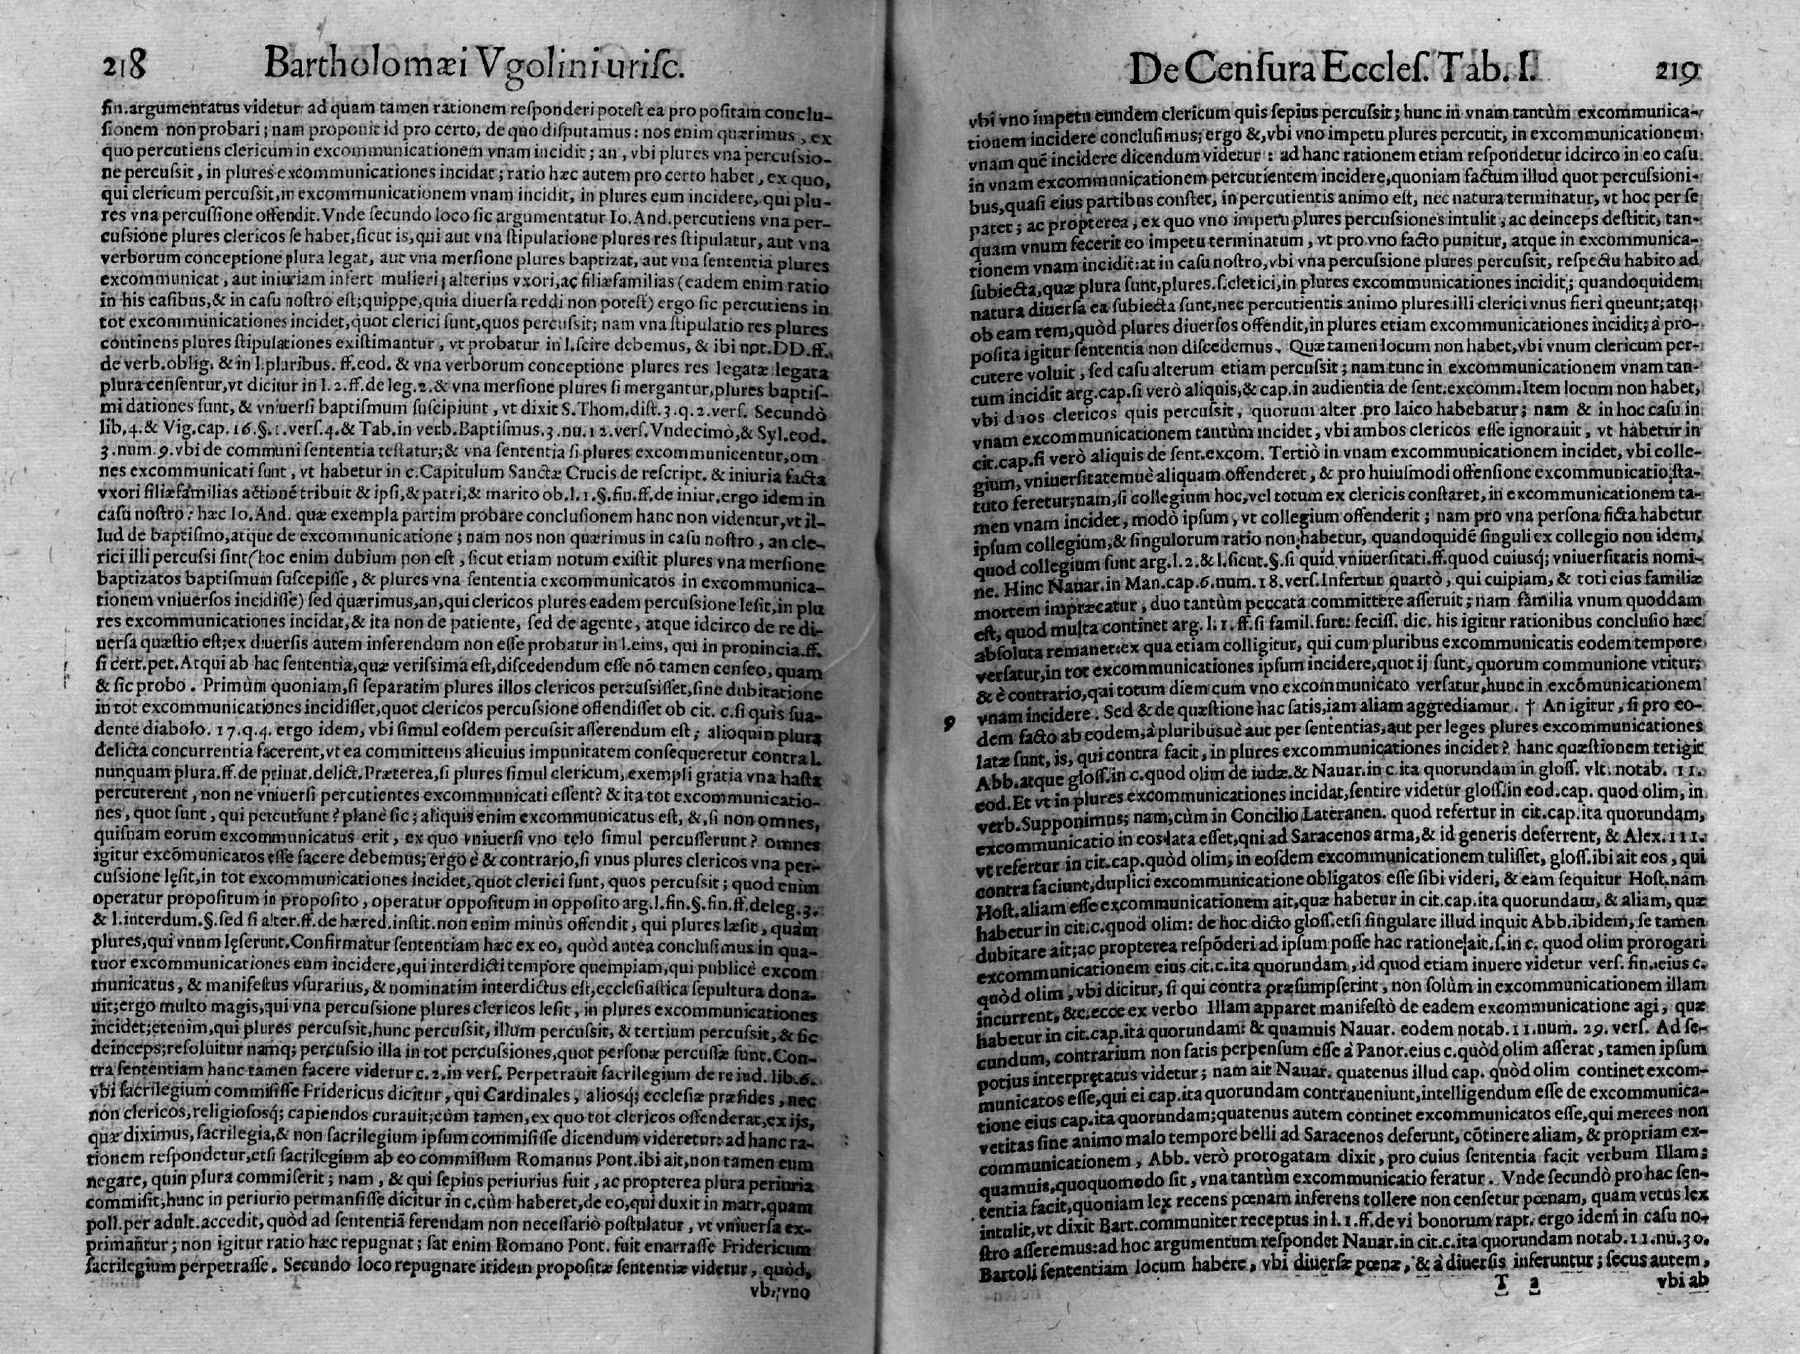 218 Bartholomæi Vgolini uriſc.
ſin.argumentatus videtur ad quam tamen rationem reſponderi poteſt ea pro poſitam conclu-
ſionem non probari; nam proponit id pro certo, de quo diſputamus: nos enim quærimus, ex
quo percutiens clericum in excommunicationem vnam incidit; an, vbi plures vna percuſsio-
ne percuſsit, in plures excommunicationes incidat; ratio hæc autem pro certo habet, ex quo,
qui clericum percuſsit,in excommunicationem vnam incidit, in plures eum incidere, qui plu-
res vna percuſſione offendit. Vnde ſecundo loco ſic argumentatur Io. And.percutiens vna per-
cuſsione plures clericos ſe habet,ſicut is,qui aut vna ſtipulatione plures res ſtipulatur, aut vna
verborum conceptione plura legat, aut vna merſione plures baptizat, aut vna ſententia plures
excommunicat, aut iniuriam infert mulieri; alterius vxori,ac filiæfamilias (eadem enim ratio
in his caſibus,& in caſu noſtro eſt;quippe,quia diuerſa reddi non poteſt) ergo ſic percutiens in
tot excommunicationes incidet,quot clerici ſunt,quos percuſsit; nam vna ſtipulatio res plures
continens plures ſtipulationes exiſtimantur, vt probatur in l.ſcire debemus, & ibi not.DD.ff.
de verb.oblig. & in l.pluribus. ff.eod. & vna verborum conceptione plures res legatæ legata
plura cenſentur,vt dicitur in l.2.ff.de leg.2.& vna merſione plures ſi mergantur,plures baptiſ-
mi dationes ſunt, & vniuerſi baptiſmum ſuſcipiunt, vt dixit S. Thom.diſt.3.q.2.verſ. Secundò
lib.4.& Vig.cap. 16.§.1.verſ.4.& Tab.in verb.Baptiſmus.3.nu.12.verſ.Vndecimò,& Syl.eod.
3.num.9.vbi de communi ſententia teſtatur;& vna ſententia ſi plures excommunicentur,om
nes excommunicati ſunt, vt habetur in c.Capitulum Sanctæ Crucis de reſcript. & iniuria facta
vxori filiæfamilias actionē tribuit & ipſi,& patri,& marito ob.l.1.§.fin.ff.de iniur.ergo idem in
caſu noſtro: hæc Io.And. quæ exempla partim probare concluſionem hanc non videntur,vt il-
lud de baptiſmo,atque de excommunicatione; nam nos non quærimus in caſu noſtro, an cle-
rici illi percuſsi ſint(hoc enim dubium non eſt, ſicut etiam notum exiſtit plures vna merſione
baptizatos baptiſmum ſuſcepiſſe, & plures vna ſententia excommunicatos in excommunica-
tionem vniuerſos incidiſſe) ſed quærimus,an,qui clericos plures eadem percuſsione leſit,in plu
res excommunicationes incidat,& ita non de patiente, ſed de agente, atque idcirco de re di-
uerſa quæſtio eſt;ex diuerſis autem inferendum non eſſe probatur in l.eius, qui in prouincia.ff.
ſi cert.pet. Atqui ab hac ſententia,quæ veriſsima eſt,diſcedendum eſſe nō tamen cenſeo, quam
& ſic probo. Primùm quoniam,ſi ſeparatim plures illos clericos percuſsiſſet,ſine dubitatione
in tot excommunicationes incidiſſet,quot clericos percuſsione offendiſſet ob cit. c.ſi quis ſua-
dente diabolo. 17.q.4. ergo idem, vbi ſimul eoſdem percuſsit aſſerendum eſt; alioquin plura
delicta concurrentia facerent,vt ea committens alicuius impunitatem conſequeretur contra l.
nunquam plura.ff.de priuat.delict.Præterea,ſi plures ſimul clericum,exempli gratia vna haſta
percuterent, non ne vniuerſi percutientes excommunicati eſſent? & ita tot excommunicatio-
nes, quot ſunt, qui percutiunt? planè ſic; aliquis enim excommunicatus eſt, &,ſi non omnes,
quiſnam eorum excommunicatus erit, ex quo vniuerſi vno telo ſimul percuſſerunt? omnes
igitur excōmunicatos eſſe facere debemus; ergo è & contrario,ſi vnus plures clericos vna per-
cuſsione lęſit,in tot excommunicationes incidet, quot clerici ſunt, quos percuſsit; quod enim
operatur propoſitum in propoſito, operatur oppoſitum in oppoſito arg.l.fin.§.fin.ff.deleg.3.
& l.interdum.§.ſed ſi alter.ff.de hæred.inſtit.non enim minùs offendit, qui plures læſit, quàm
plures,qui vnum lęſerunt.Confirmatur ſententiam hæc ex eo, quòd antea concluſimus in qua-
tuor excommunicationes eum incidere,qui interdicti tempore quempiam,qui publicè excom
municatus, & manifeſtus vſurarius, & nominatim interdictus eſt,eccleſiaſtica ſepultura dona-
uit;ergo multo magis,qui vna percuſsione plures clericos leſit, in plures excommunicationes
incidet;etenim,qui plures percuſsit,hunc percuſsit, illum percuſsit, & tertium percuſsit, & ſic
deinceps;reſoluitur namq; percuſsio illa in tot percuſsiones,quot perſonæ percuſſæ ſunt.Con-
tra ſententiam hanc tamen facere videtur c.2.in verſ. Perpetrauit ſacrilegium de re iud. lib.6.
vbi ſacrilegium commiſiſſe Fridericus dicitur, qui Cardinales, alioſq; eccleſiæ præſides, nec
non clericos,religioſoſq; capiendos curauit;cùm tamen,ex quo tot clericos offenderat,ex ijs,
quæ diximus, ſacrilegia,& non ſacrilegium ipſum commiſiſſe dicendum videretur: ad hanc ra-
tionem reſpondetur,etſi ſacrilegium ab eo commiſſum Romanus Pont.ibi ait,non tamen eum
negare, quin plura commiſerit; nam, & qui ſepius periurius fuit, ac propterea plura periuria
commiſit,hunc in periurio permanſiſſe dicitur in c.cùm haberet,de eo,qui duxit in matr.quam
poll.per adult.accedit, quòd ad ſententiā ferendam non neceſſariò poſtulatur, vt vniuerſa ex-
primantur; non igitur ratio hæc repugnat; ſat enim Romano Pont. fuit enarraſſe Fridericum
ſacrilegium perpetraſſe. Secundo loco repugnare itidem propoſitæ ſententiæ videtur, quòd,
vbi vno
De Cenſura Eccleſ. Tab. I. 219
vbi vno impetu eundem clericum quis ſepius percuſsit; hunc in vnam tantùm excommunica-
tionem incidere concluſimus; ergo &,vbi vno impetu plures percutit, in excommunicationem
vnam quē incidere dicendum videtur: ad hanc rationem etiam reſpondetur idcirco in eo caſu
in vnam excommunicationem percutientem incidere,quoniam factum illud quot percuſsioni-
bus,quaſi eius partibus conſtet, in percutientis animo eſt, nec natura terminatur, vt hoc per ſe
patet; ac propterea, ex quo vno impetu plures percuſsiones intulit, ac deinceps deſtitit, tan-
quam vnum fecerit eo impetu terminatum, vt pro vno facto punitur, atque in excommunica-
tionem vnam incidit:at in caſu noſtro,vbi vna percuſsione plures percuſsit, reſpectu habito ad
ſubiecta,quæ plura ſunt,plures.ſ.clerici,in plures excommunicationes incidit; quandoquidem
natura diuerſa ea ſubiecta ſunt,nec percutientis animo plures illi clerici vnus fieri queunt;atq;
ob eam rem,quòd plures diuerſos offendit,in plures etiam excommunicationes incidit; à pro-
poſita igitur ſententia non diſcedemus. Quæ tamen locum non habet,vbi vnum clericum per-
cutere voluit, ſed caſu alterum etiam percuſsit; nam tunc in excommunicationem vnam tan-
tum incidit arg.cap.ſi verò aliquis,& cap.in audientia de ſent.excomm.Item locum non habet,
vbi duos clericos quis percuſsit, quorum alter pro laico habebatur; nam & in hoc caſu in
vnam excommunicationem tantùm incidet, vbi ambos clericos eſſe ignorauit, vt habetur in
cit.cap.ſi verò aliquis de ſent.excom. Tertiò in vnam excommunicationem incidet, vbi colle-
gium, vniuerſitatemuè aliquam offenderet, & pro huiuſmodi offenſione excommunicatio ſta-
tuto feretur;nam,ſi collegium hoc,vel totum ex clericis conſtaret,in excommunicationem ta-
men vnam incidet, modò ipſum, vt collegium offenderit; nam pro vna perſona ficta habetur
ipſum collegium,& ſingulorum ratio non habetur, quandoquidē ſinguli ex collegio non idem,
quod collegium ſunt arg.l.2.& l.ſicut.§.ſi quid vniuerſitati.ff.quod cuiusq; vniuerſitatis nomi-
ne. Hinc Nauar.in Man.cap.6.num.18.verſ.Infertur quartò, qui cuipiam, & toti eius familiæ
mortem impræcatur, duo tantùm peccata committere aſſeruit; nam familia vnum quoddam
eſt, quod multa continet arg. l.1.ff.ſi famil.furt. feciſſ. dic. his igitur rationibus concluſio hæc
abſoluta remanet:ex qua etiam colligitur, qui cum pluribus excommunicatis eodem tempore
verſatur,in tot excommunicationes ipſum incidere,quot ij ſunt, quorum communione vtitur;
& è contrario,qui totum diem cum vno excommunicato verſatur,hunc in excōmunicationem
9 vnam incidere. Sed & de quæſtione hac ſatis,iam aliam aggrediamur. † An igitur, ſi pro eo-
dem facto ab eodem,à pluribusuè aut per ſententias,aut per leges plures excommunicationes
latæ ſunt, is, qui contra facit, in plures excommunicationes incidet? hanc quæſtionem tetigit
Abb.atque gloſſ.in c.quod olim de iudæ.& Nauar.in c.ita quorundam in gloſſ. vlt. notab. 11.
eod.Et vt in plures excommunicationes incidat,ſentire videtur gloſſ.in eod.cap. quod olim, in
verb.Supponimus; nam,cùm in Concilio Lateranen. quod refertur in cit.cap.ita quorundam,
excommunicatio in eos lata eſſet,qui ad Saracenos arma,& id generis deferrent, & Alex.III.
vt refertur in cit.cap.quòd olim, in eoſdem excommunicationem tuliſſet, gloſſ.ibi ait eos, qui
contra faciunt,duplici excommunicatione obligatos eſſe ſibi videri, & eam ſequitur Hoſt.nam
Hoſt.aliam eſſe excommunicationem ait,quæ habetur in cit.cap.ita quorundam, & aliam, quæ
habetur in cit.c.quod olim: de hoc dicto gloſſ.etſi ſingulare illud inquit Abb.ibidem, ſe tamen
dubitare ait;ac propterea reſpōderi ad ipſum poſſe hac ratione ait.ſ.in c. quod olim prorogari
excommunicationem eius cit.c.ita quorundam, id quod etiam inuere videtur verſ. fin.eius c.
quòd olim, vbi dicitur, ſi qui contra præſumpſerint, non ſolùm in excommunicationem illam
incurrent, &c.ecce ex verbo Illam apparet manifeſtò de eadem excommunicatione agi, quæ
habetur in cit.cap.ita quorundam: & quamuis Nauar. eodem notab.11.num. 29. verſ. Ad ſe-
cundum, contrarium non ſatis perpenſum eſſe à Panor.eius c.quòd olim aſſerat, tamen ipſum
potius interpretatus videtur; nam ait Nauar. quatenus illud cap. quòd olim continet excom-
municatos eſſe,qui ei cap.ita quorundam contraueniunt,intelligendum eſſe de excommunica-
tione eius cap.ita quorundam;quatenus autem continet excommunicatos eſſe,qui merces non
vetitas ſine animo malo tempore belli ad Saracenos deferunt, cōtinere aliam, & propriam ex-
communicationem, Abb. verò prorogatam dixit, pro cuius ſententia facit verbum Illam;
quamuis,quoquomodo ſit, vna tantùm excommunicatio feratur. Vnde ſecundò pro hac ſen-
tentia facit,quoniam lex recens pœnam inferens tollere non cenſetur pœnam, quam vetus lex
intulit,vt dixit Bart.communiter receptus in l.1.ff.de vi bonorum rapt. ergo idem in caſu no-
ſtro aſſeremus:ad hoc argumentum reſpondet Nauar.in cit.c.ita quorundam notab.11.nu.30.
Bartoli ſententiam locum habere, vbi diuerſæ pœnæ, & à diuerſis inferuntur; ſecus autem,
T 2 vbi ab